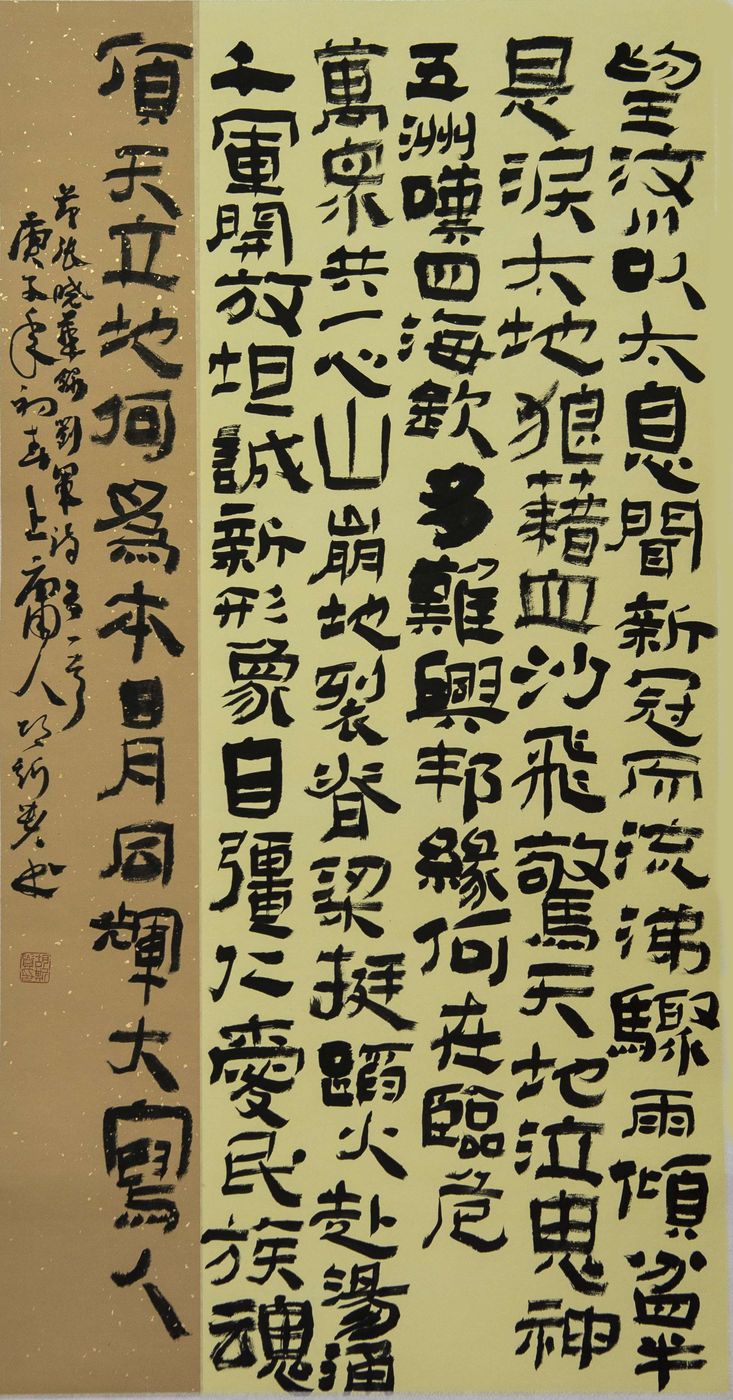 望汶川以太息聞新冠而流涕驟雨傾盆半
是淚大地狼藉血沙飛驚天地泣鬼神
五洲嘆四海欽多難興邦緣何在臨危
萬眾共一心山崩地裂脊梁挺蹈火赴湯涌
千軍開放坦誠新形象自彊仁愛民族魂
頂天立地何為本日月同輝大寫人
張曉華劉軍詩
庚子年初春上庸人書